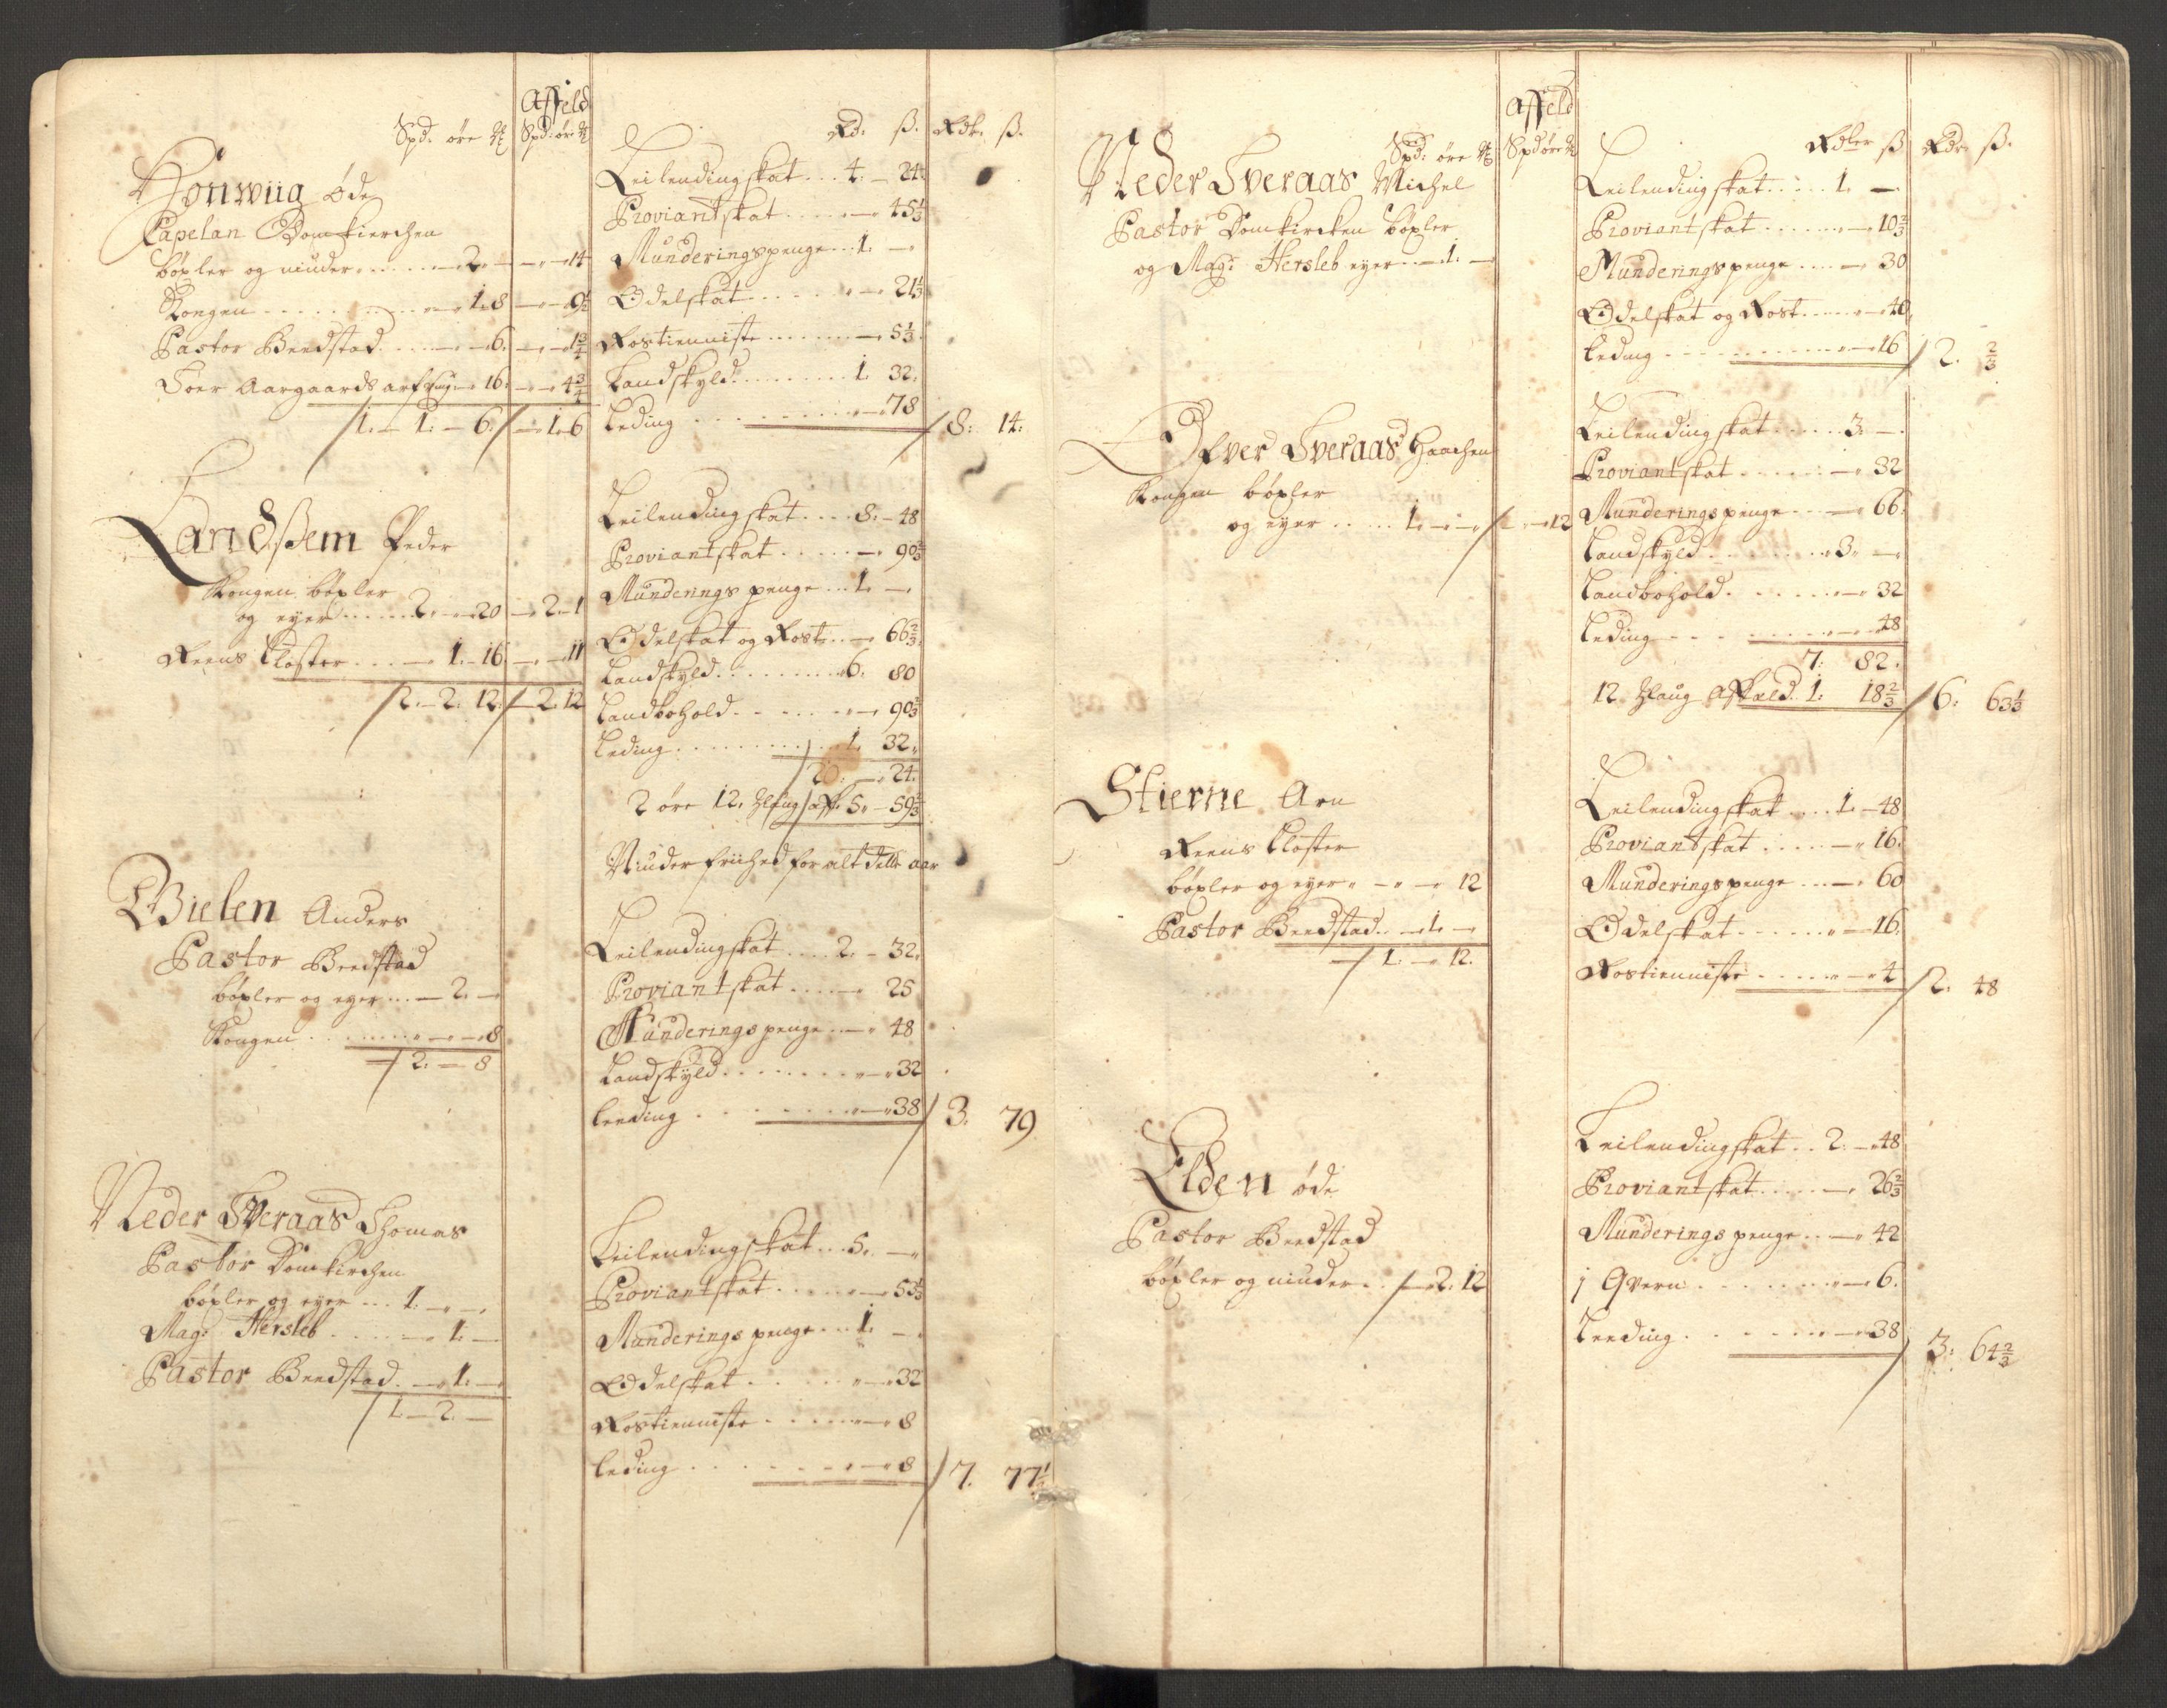 Affeld
Spd. øre ℔ Spd: øre ℔
Rd: ß. Rdr. ß.
Honwiig Øde
Capelan Domkierchen
böxler og niuder 2. — 14
Kongen 1. 8 — 9½
Pastor Beedstad 6. — 1¾
Soer Aargaards arfving 16. — 4¾
1. — 1. — 6. — 1. 6
Leilendingskat 4. — 24
Proviantskat — 45⅓
Munderingspenge 1. —
Odelskat — 21⅓
Rostienniste — 5⅓
Landskyld 1. 32.
Leding — 78
8. 14.
Landßem Peder
Kongen böxler
og eyer 2. — 20 — 2. 1
Reens Closter — 1. 16 — 11
2. — 2. 12. — 2. 12
Leilendingskat 8. — 48
Proviantskat — 90⅔
Munderings penge 1. —
Odelskat og Rost — 66⅔
Landskyld 6. 80
Landbohold — 90⅔
Leding 1. 32.
20. — 24.
2 øre 12. ℔laug aff. 5. — 59⅔
Niuder friihed for alt dette aar
Bielen Anders
Pastor Beedstad
böxler og eyer — 2. —
Kongen — 8
2. — 8
Leilendingskat 2. — 32.
Proviantskat — 25
Munderings penge — 48
Landskyld — 32
Leeding — 38
3. 79
Neder Sveraas Thomas
Pastor Domkirchen
böxler og eyer 1. — —
Mag: Hersleb — 1. —
Pastor Beedstad — 1. —
1. — 2. —
Leilendingskat 5. —
Proviantskat — 53⅓
Munderings penge 1. —
Odelskat — 32
Rostienniste — 8
Leding — 8
7. 77⅓
Affeld
Spd: øre ℔ Spd øre ℔
Rdler ß Rdr. ß.
Neder Sveraas Michel
Pastor Domkircken böxler
og Mag: Hersleb eyer — 1. —
Leilendingskat 1. —
Proviantskat — 10⅔
Munderingspenge — 30
Odelskat og Rost — 40.
Leding — 16
2. ⅔
Øfver Sveraas Haachen
Kongen böxler
og eyer 1. — — — 12
Leilendingskat 3. —
Proviantskat — 32
Munderingspenge — 66.
Landskyld 3. —
Landbohold — 32
Leding — 48
7. 82.
12 ℔laug Affæld 1. 18⅔
6. 63⅓
Stierne Arn
Reens Closter
böxler og eyer — — 12
Pastor Beedstad — 1. —
1. — 12.
Leilendingskat 1. — 48
Proviantskat — 16.
Munderingspenge — 60
Odelskat — 16.
Rostienniste — 4
2. 48
Elden øde
Pastor Beedstad
böxler og niuder — 2. 12
Leilendingskat 2. — 48
Proviantskat — 26⅔
Munderings penge — 42
1 Qvern — 6.
Leeding — 38
3. 64⅔